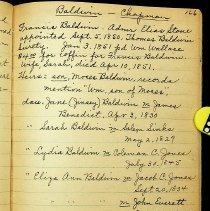 Baldwin - Chapman 166
Francis Baldwin - Admr Elias Stone
appointed Sept. 5, 1850, Thomas Baldwin
Surety. Jan 3, 1851 pd Wm Wallace
$4.00 for Coffin for Francis Baldwin.
Wife, Sarah, died Apr 10, 1851.
Heirs: son, Moses Baldwin, records
mention "Wm, son of Moses".
daus. Jane (Jinsey) Baldwin m James
Benedict, Apr 3, 1830
" Sarah Baldwin m Solen Sinks
May 2, 1829
" Lydia Baldwin m Coleman C. Jones
July 30, 1845
" Eliza Ann Baldwin m Jacob C. Jones
Sept 20, 1834
m John Everett